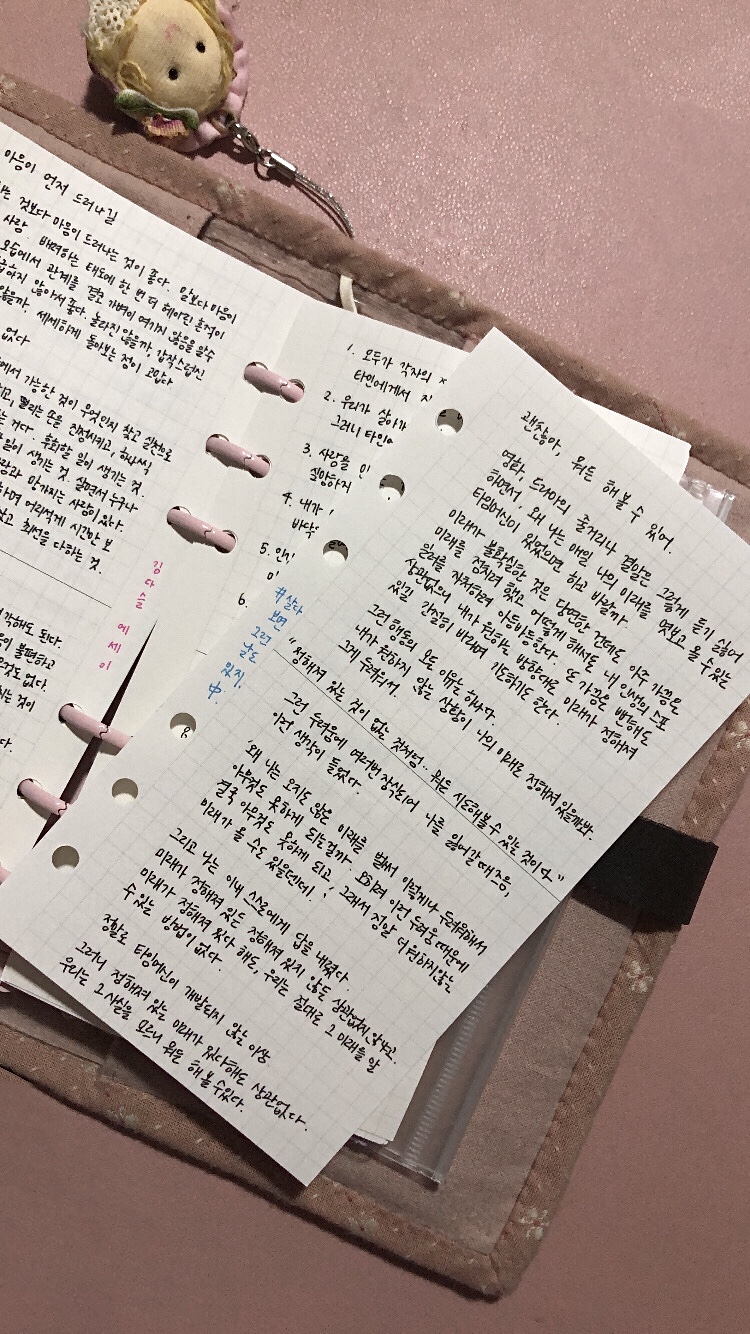 마음이 먼저 드러나길
는 것보다 마음이 드러나는 것이 좋다. 말보다 마음이
사랑. 배려하는 태도에 한 번 더 헤아린 흔적이
모습에서 관계를 결코 가벼이 여기지 않음을 알 수
급하지 않아서 좋다. 놀라진 않을까, 갑작스럽진
않을까, 세세하게 돌아보는 정이 고맙다
없다
에서 가능한 것이 무엇인지 찾고 실천으로
고, 떨리는 손을 진정시키고, 하나씩
는 거다. 후회할 일이 생기는 것.
일이 생기는 것. 살면서 누구나
랑과 망가지는 사랑이 있다.
하며 어리석게 시간만 보
았고 최선을 다하는 것.
김다솔 에세이
각해도 된다.
불편하고
것도 없다.
지는 것이
다.
1. 모두가 각자의
타인에게서
2. 우리가 살아가
그러니 타인
3. 사랑을
실망하지
4. 내가
바닥
5. 인
6.
괜찮아, 뭐든 해볼 수 있어.
영화, 드라마의 줄거리나 결말은 그렇게 듣기 싫어
하면서, 왜 나는 매일 나의 미래를 엿보고 올 수 있는
타임머신이 있었으면 하고 바랄까.
미래가 불확실한 것은 당연한 건데도 아주 가끔은
미래를 점치려 했고 어떻게 해서도 내 인생의 스포
일러를 자처하려 아등바등한다. 또 가끔은 뻔해도
상관없으니 내가 원하는 방향대로 미래가 정해져
있길 간절히 바라며 기도하기도 한다.
그런 행동의 모든 이유는 하나다.
내가 원하지 않는 상황이 나의 미래로 정해져 있을까봐.
그게 두려워서.
"정해져 있는 것이 없는 것처럼.. 뭐든 시도해볼 수 있는 것이다"
#살다
보면 그런
날도
있지.
中.
그런 두려움에 여러번 장악되어 나를 잃어갈 때즈음,
이런 생각이 들었다.
'왜 나는 오지도 않은 미래를 벌써 이렇게나 두려워해서
아무것도 못하게 되는걸까. 오히려 이런 두려움 때문에
결국 아무것도 못하게 되고, 그래서 정말 더 원하지않는
미래가 올 수도 있을텐데.'
그리고 나는 이내 스스로에게 답을 내렸다.
미래가 정해져 있든 정해져 있지 않든 상관없지 않냐고.
미래가 정해져 있다 해도, 우리는 절대로 그 미래를 알
수 있는 방법이 없다.
정말로 타임머신이 개발되지 않는 이상
그러니 정해져 있는 미래가 있다해도 상관없다.
우리는 그 사실을 모르니 뭐든 해볼 수 있다.